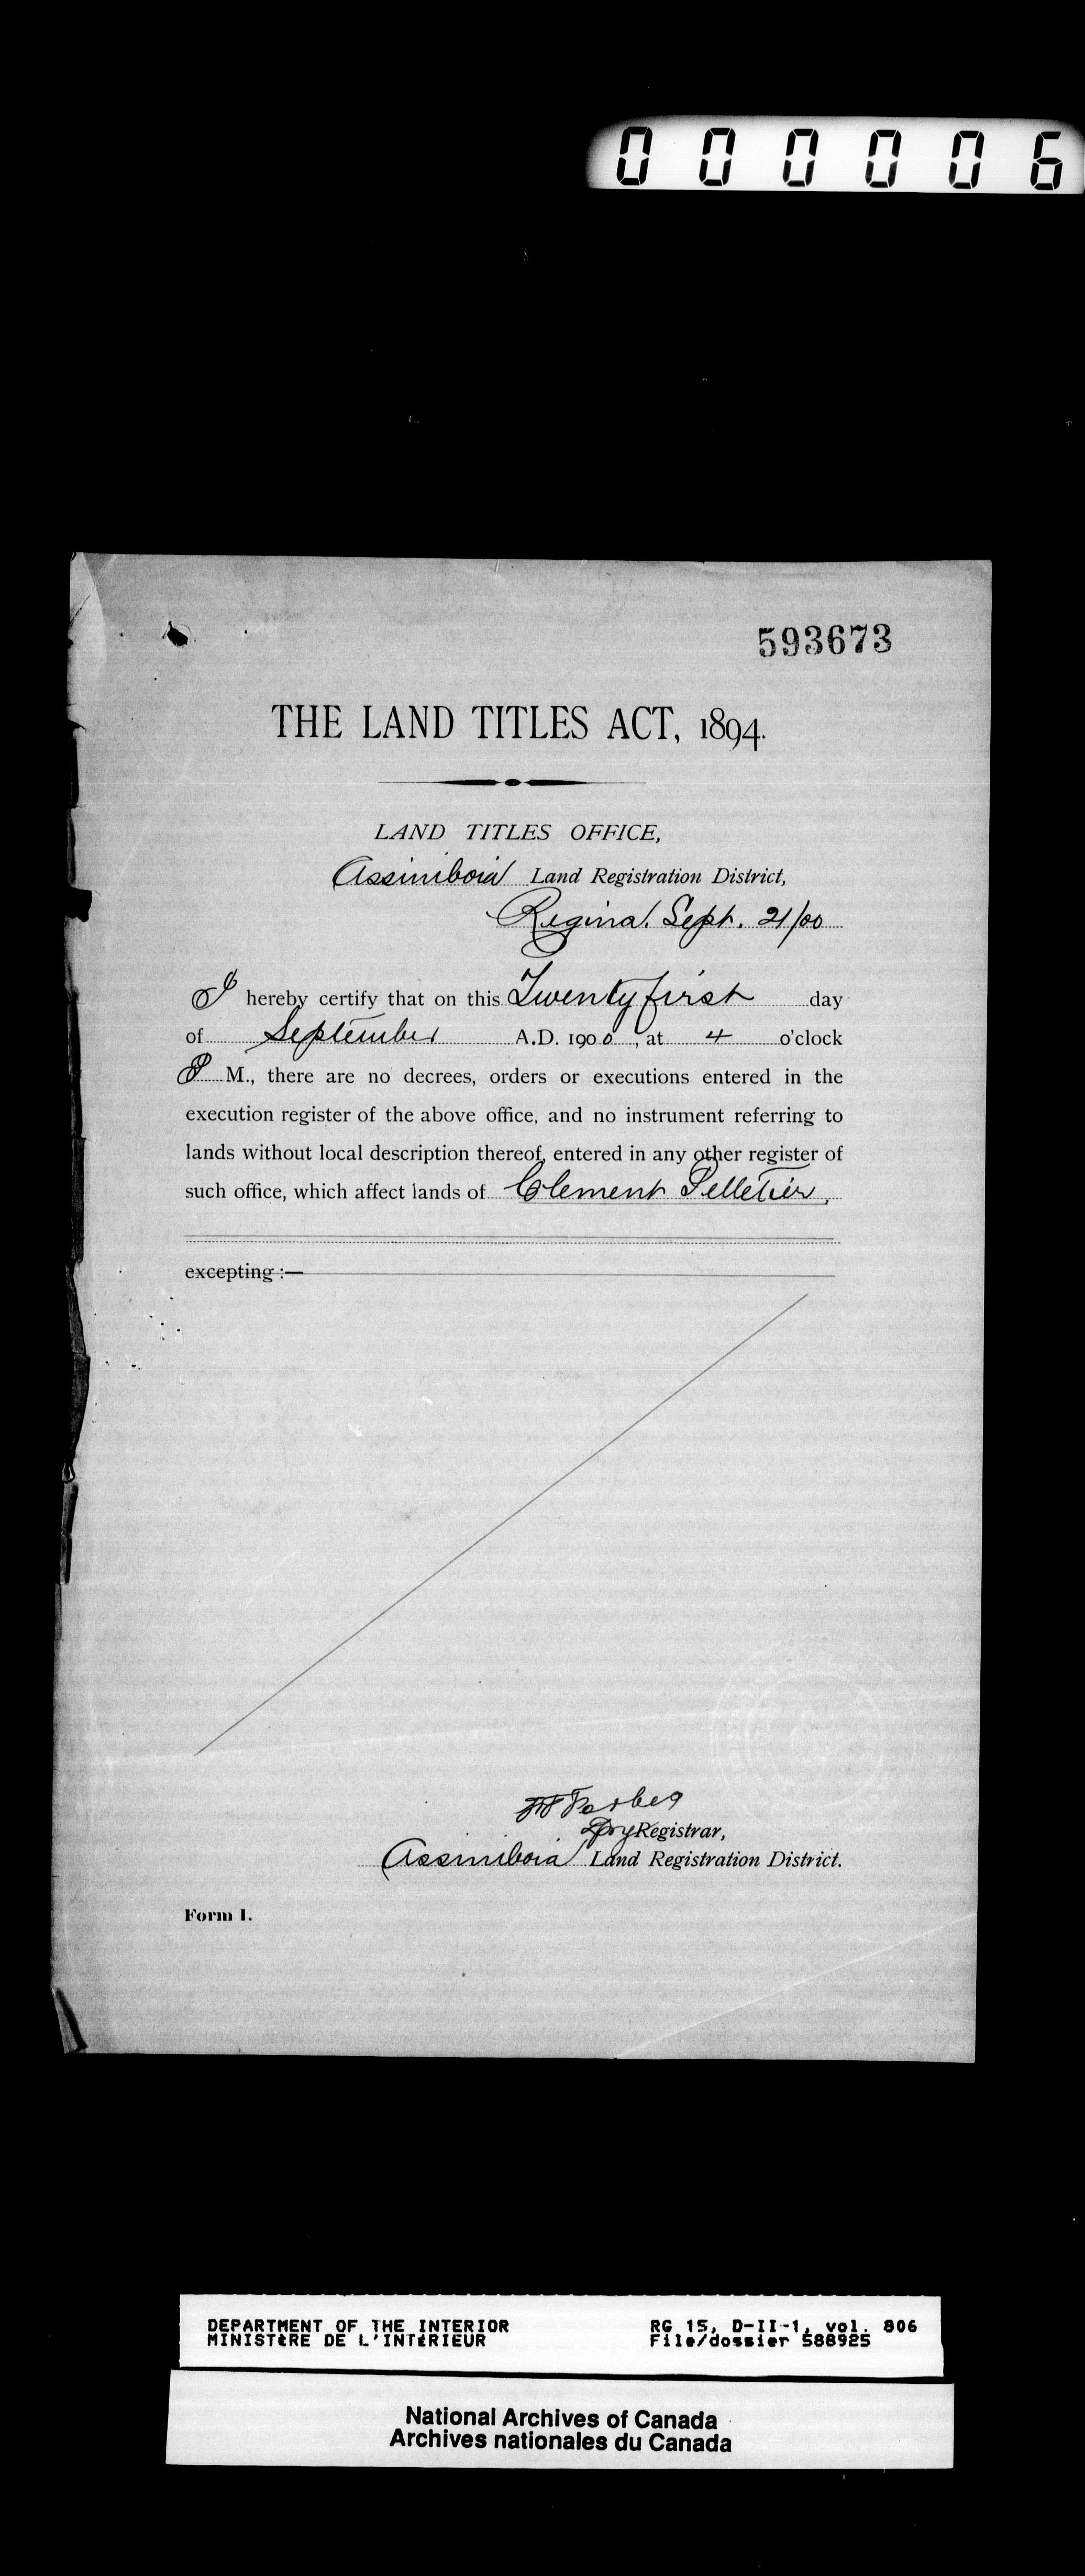 000006
593673
THE LAND TITLES ACT, 1894.
LAND TITLES OFFICE,
Assiniboia Land Registration District,
Regina. Sept. 21/00
I hereby certify that on this Twenty first day
of September A.D. 1900, at 4 o'clock
P M., there are no decrees, orders or executions entered in the
execution register of the above office, and no instrument referring to
lands without local description thereof, entered in any other register of
such office, which affect lands of Clement Pelletier,
excepting :—
Registrar,
Assiniboia Land Registration District.
Form 1.
DEPARTMENT OF THE INTERIOR RG 15, D-II-1, vol. 806
MINISTÈRE DE L'INTÉRIEUR File/dossier 588925
National Archives of Canada
Archives nationales du Canada